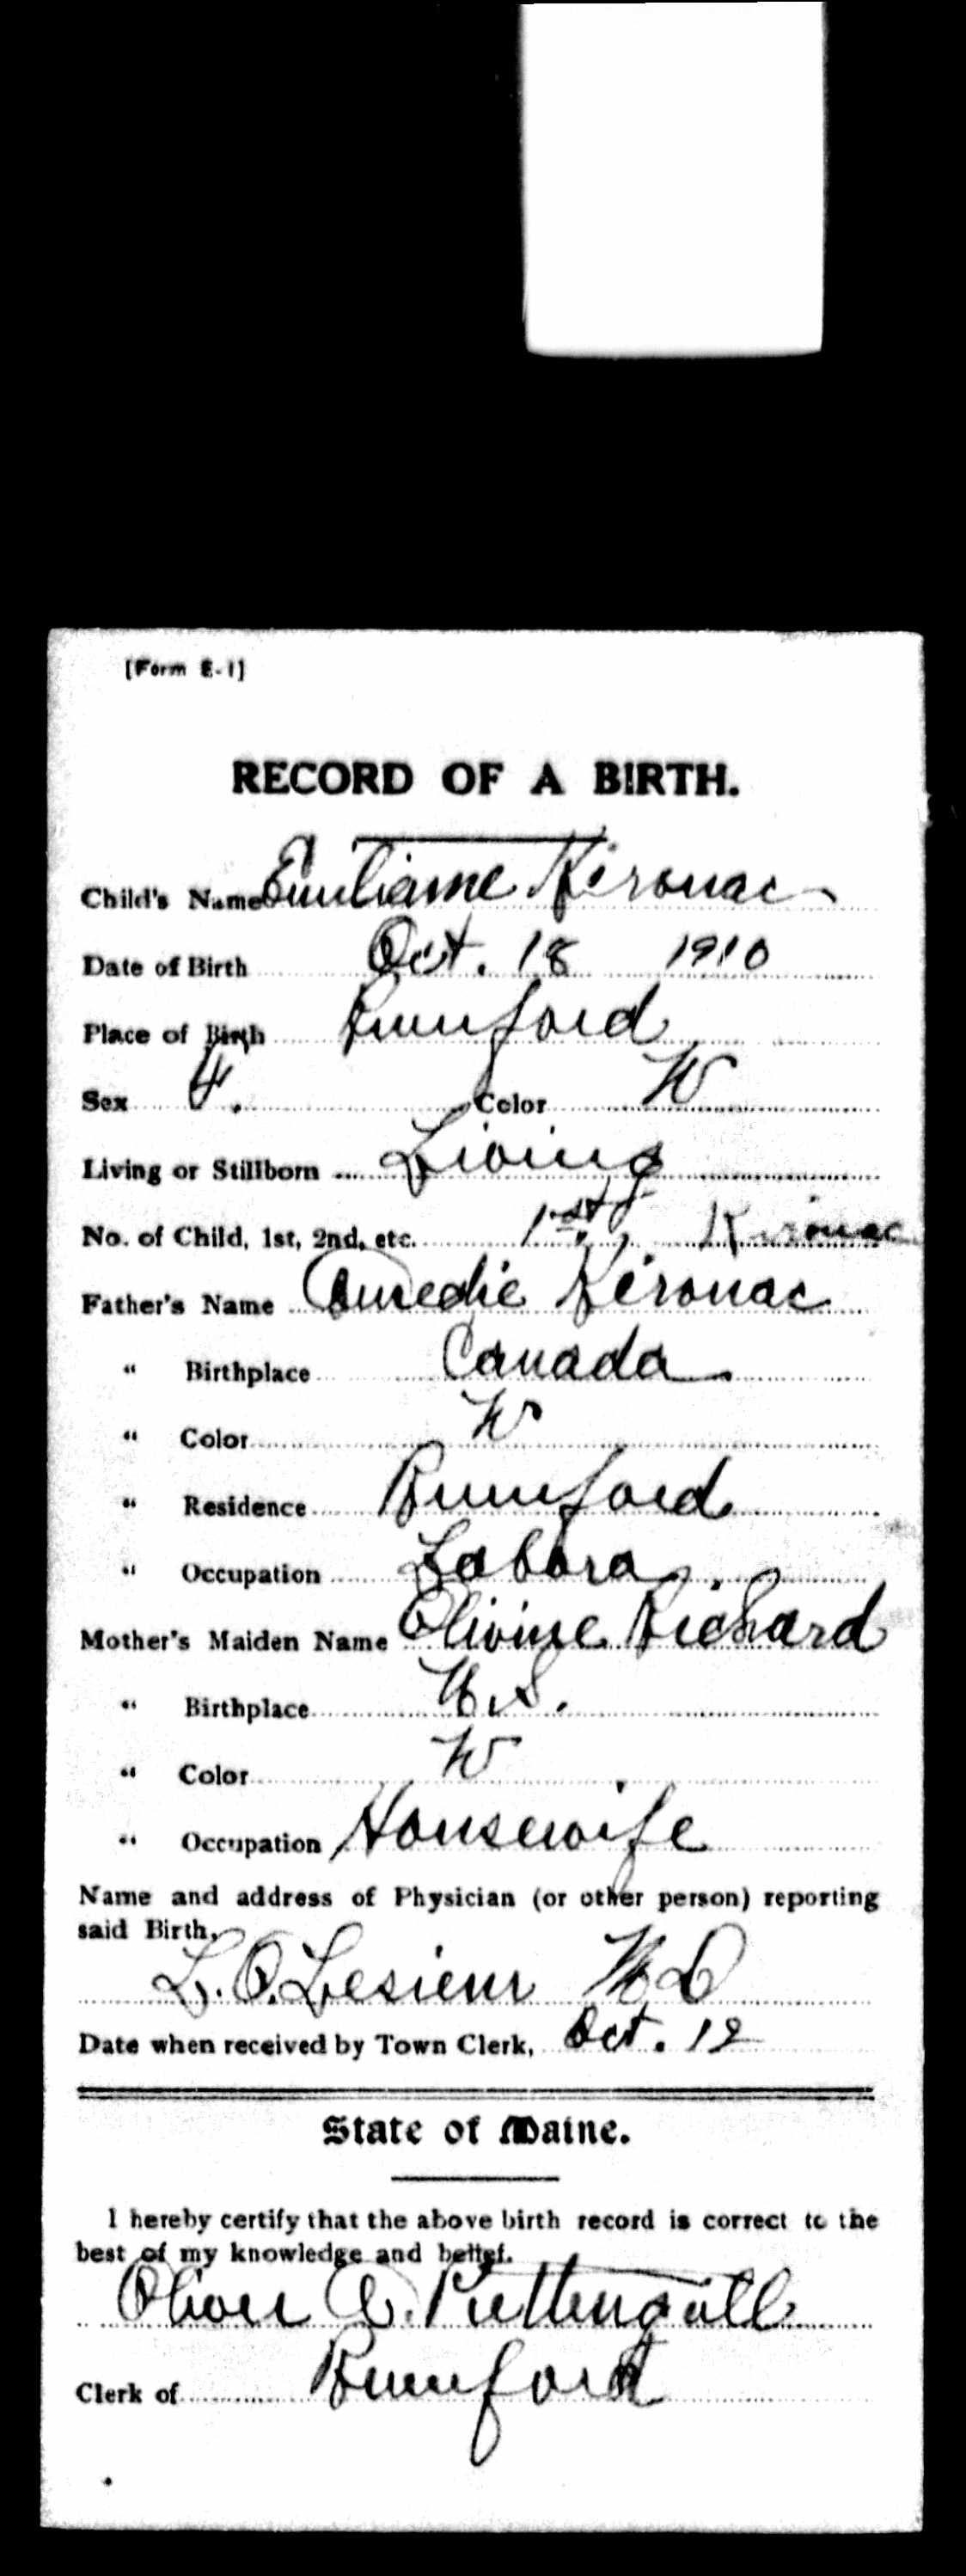 [Form E-1]
RECORD OF A BIRTH.
Child's Name Emiliame Kirouac
Date of Birth Oct. 18 1910
Place of Birth Rumford
Sex F. Color W
Living or Stillborn Living
No. of Child, 1st, 2nd, etc. 1st. Kirouac
Father's Name Amedie Kirouac
" Birthplace Canada
" Color W
" Residence Rumford
" Occupation Labora
Mother's Maiden Name Olivine Richard
" Birthplace U.S.
" Color W
" Occupation Housewife
Name and address of Physician (or other person) reporting
said Birth.
L.O. Lesieur M D
Date when received by Town Clerk, Oct. 19
State of Maine.
I hereby certify that the above birth record is correct to the
best of my knowledge and belief.
Oliver A. Pettengill
Clerk of Rumford